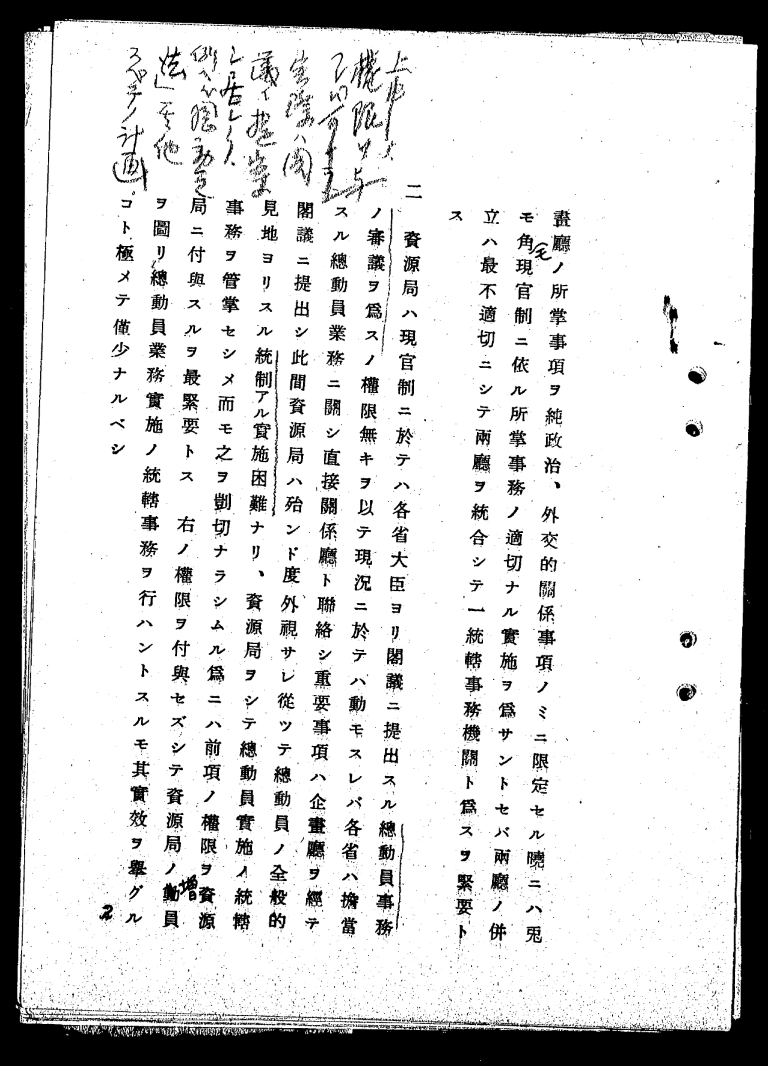 畫廳ノ所掌事項ヲ純政治、外交的關係事項ノミニ限定セル曉ニハ兎
モ角現官制ニ依ル所掌事務ノ適切ナル實施ヲ爲サントセバ兩廳ノ併
立ハ最不適切ニシテ兩廳ヲ統合シテ一統轄事務機關ト爲スヲ緊要ト
ス
二 資源局ハ現官制ニ於テハ各省大臣ヨリ閣議ニ提出スル總動員事務
ノ審議ヲ爲スノ權限無キヲ以テ現況ニ於テハ動モスレバ各省ハ擔當
スル總動員業務ニ關シ直接關係廳ト聯絡シ重要事項ハ企畫廳ヲ經テ
閣議ニ提出シ此間資源局ハ殆ンド度外視サレ從ツテ總動員ノ全般的
見地ヨリスル統制アル實施困難ナリ、資源局ヲシテ總動員實施ノ統轄
事務ヲ管掌セシメ而モ之ヲ剴切ナラシムル爲ニハ前項ノ權限ヲ資源
局ニ付與スルヲ最緊要トス 右ノ權限ヲ付與セズシテ資源局ノ動員
增
ヲ圖リ總動員業務實施ノ統轄事務ヲ行ハントスルモ其實效ヲ擧グル
コト極メテ僅少ナルベシ
權限ヲ与
實際ハ閣
議ニ提案
法其他
スベテノ計画
2